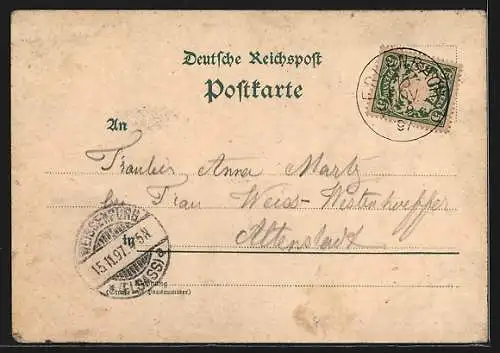 Deutsche Reichspost
Postkarte
An
Fräulein Anna Martz
bei Frau Weiss-Westenhoeffer
Altenstadt
WEISSENBURG
15.11.97.
* (ELSASS) *
in
Wohnung
(Straße und Hausnummer)
97